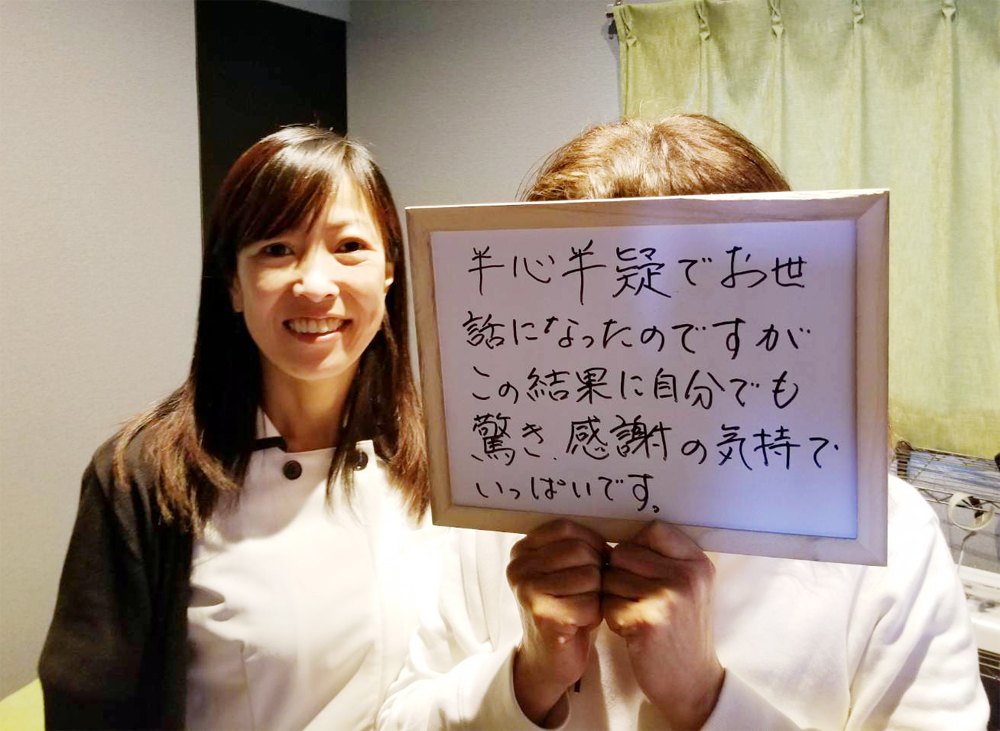 半心半疑でお世
話になったのですが
この結果に自分でも
驚き、感謝の気持で
いっぱいです。